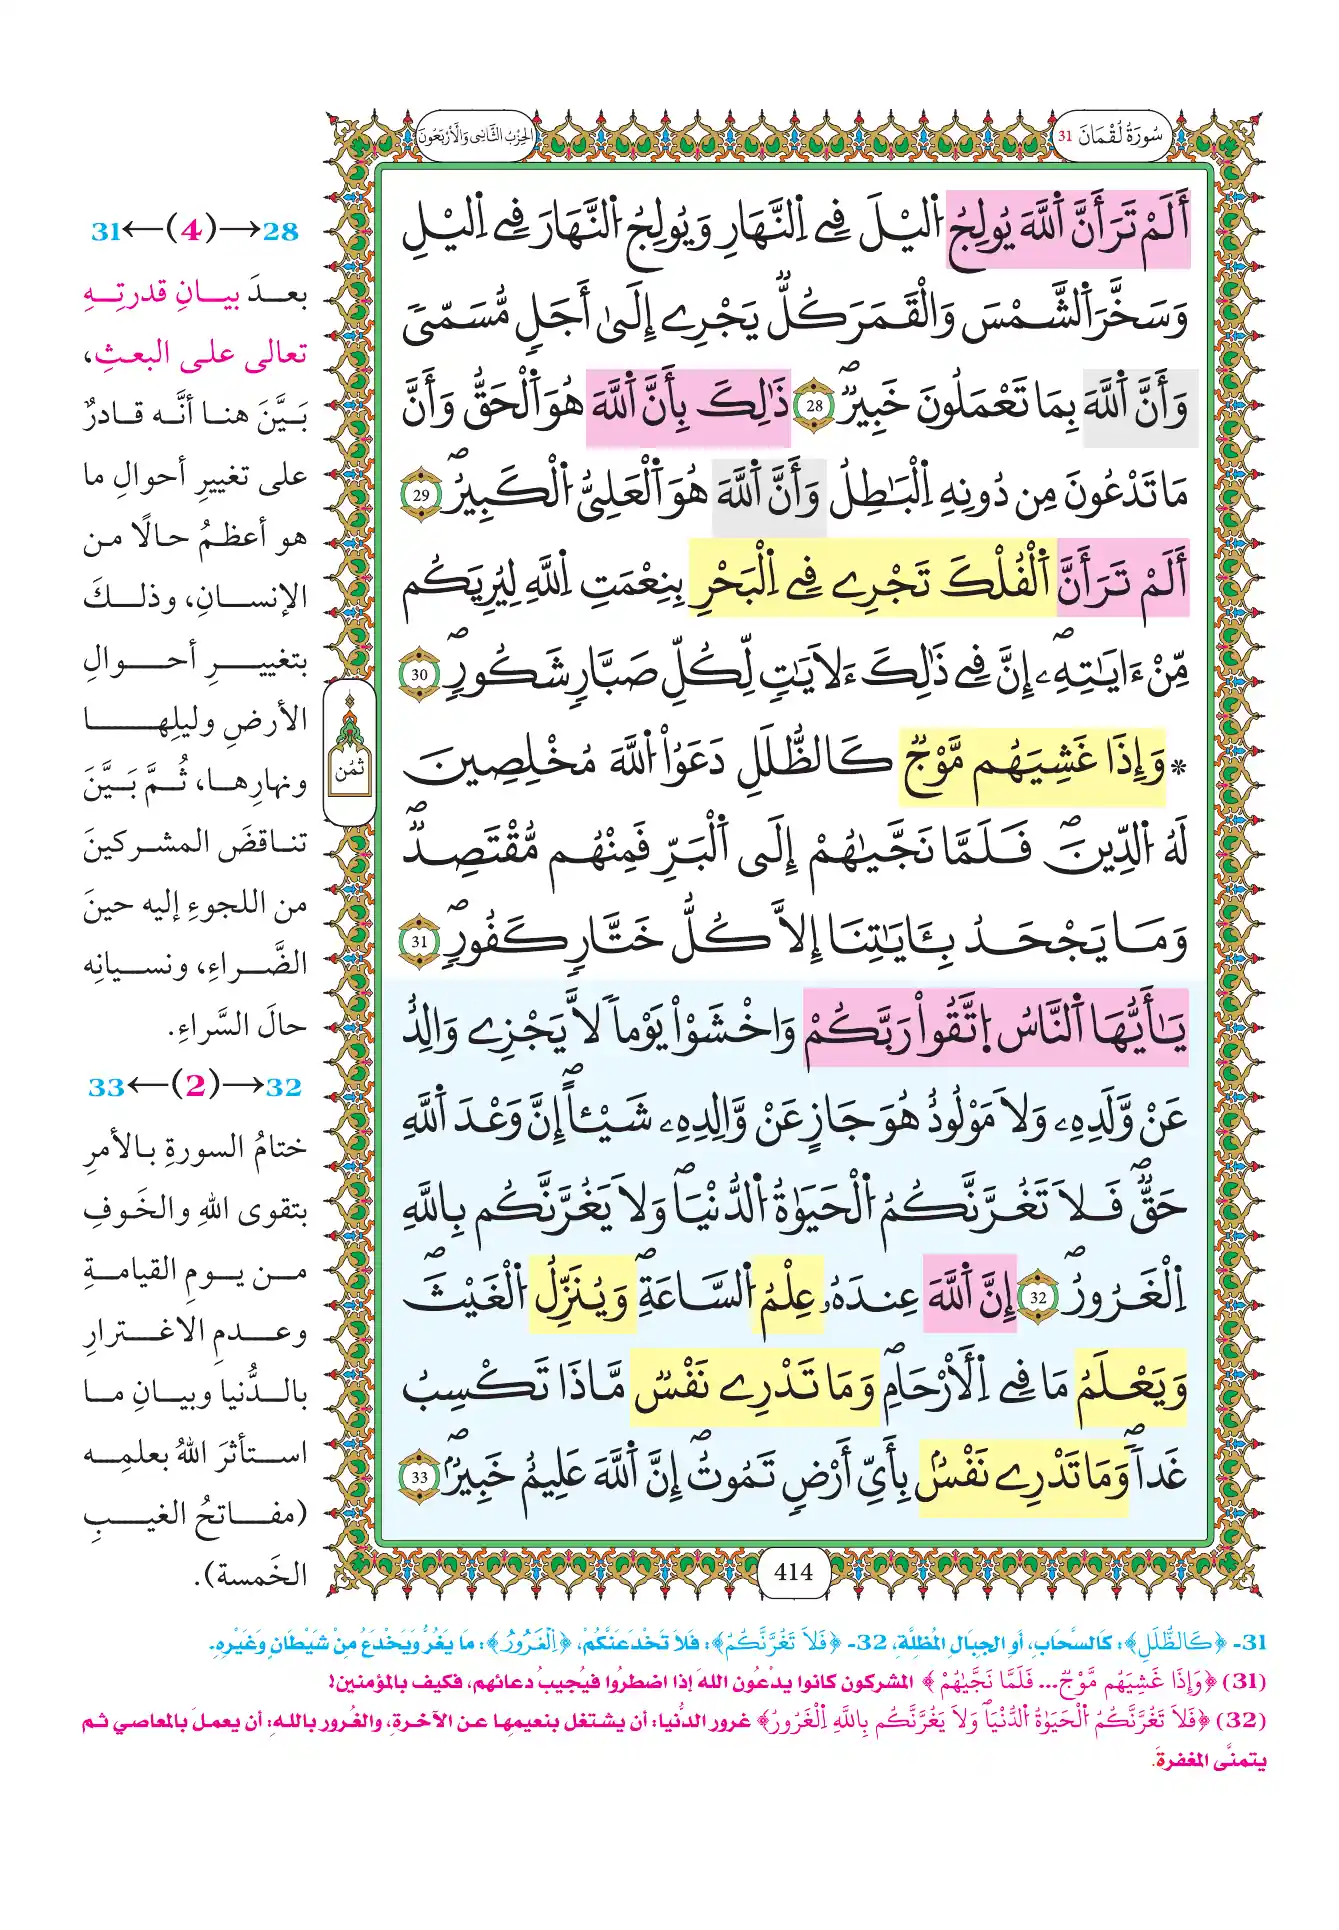 سُورَةُ لُقْمَانَ 31
الحِزْبُ الثَّانِي وَالْأَرْبَعُونَ
أَلَمْ تَرَ أَنَّ اَللَّهَ يُولِجُ اُليْلَ فِے اِلنَّهَارِ وَيُولِجُ اُلنَّهَارَ فِے اِليْلِ
وَسَخَّرَ اَلشَّمْسَ وَالْقَمَرَ كُلٌّ يَجْرِے إِلَىٰ أَجَلٍ مُّسَمّىٗ
وَأَنَّ اَللَّهَ بِمَا تَعْمَلُونَ خَبِيرٌۖ 28 ذَٰلِكَ بِأَنَّ اَللَّهَ هُوَ اَلْحَقُّ وَأَنَّ
مَا تَدْعُونَ مِن دُونِهِ اِلْبَٰطِلُ وَأَنَّ اَللَّهَ هُوَ اَلْعَلِيُّ اُلْكَبِيرُۖ 29
أَلَمْ تَرَ أَنَّ اَلْفُلْكَ تَجْرِے فِے اِلْبَحْرِ بِنِعْمَتِ اِللَّهِ لِيُرِيَكُم
مِّنْ ءَايَٰتِهِۦٓۖ إِنَّ فِے ذَٰلِكَ ءَلَايَٰتٍ لِّكُلِّ صَبَّارٍ شَكُورٍۖ 30
* وَإِذَا غَشِيَهُم مَّوْجٌ كَالظُّلَلِ دَعَوُاْ اُللَّهَ مُخْلِصِينَ
لَهُ اُلدِّينَۖ فَلَمَّا نَجَّيٰهُمْ إِلَى اَلْبَرِّ فَمِنْهُم مُّقْتَصِدٌۖ
وَمَا يَجْحَدُ بِـَٔايَٰتِنَا إِلَّا كُلُّ خَتَّارٍ كَفُورٍۖ 31
يَٰأَيُّهَا اَلنَّاسُ اُتَّقُواْ رَبَّكُمْ وَاخْشَوْاْ يَوْماً لَّا يَجْزِے وَالِدٌ
عَنْ وَّلَدِهِۦ وَلَا مَوْلُودٌ هُوَ جَازٍ عَنْ وَّالِدِهِۦ شَيْـٔاًۖ إِنَّ وَعْدَ اَللَّهِ
حَقٌّۖ فَلَا تَغُرَّنَّكُمُ اُلْحَيَوٰةُ اُلدُّنْيَاۖ وَلَا يَغُرَّنَّكُم بِاللَّهِ
اِلْغَرُورُۖ 32 إِنَّ اَللَّهَ عِندَهُۥ عِلْمُ اُلسَّاعَةِۖ وَيُنَزِّلُ اُلْغَيْثَۖ
وَيَعْلَمُ مَا فِے اِلْأَرْحَامِۖ وَمَا تَدْرِے نَفْسٌ مَّاذَا تَكْسِبُ
غَداٗۖ وَمَا تَدْرِے نَفْسٌ بِأَيِّ أَرْضٍ تَمُوتُۖ إِنَّ اَللَّهَ عَلِيمٌ خَبِيرٌۖ 33
ثُمُن
414
28→(4)←31
بعدَ بيانِ قدرتِهِ
تعالى على البعثِ،
بَيَّنَ هنا أنَّه قادرٌ
على تغييرِ أحوالِ ما
هو أعظمُ حالًا من
الإنسانِ، وذلكَ
بتغييرِ أحوالِ
الأرضِ وليلِها
ونهارِها، ثُمَّ بَيَّنَ
تناقضَ المشركينَ
من اللجوءِ إليه حينَ
الضَّراءِ، ونسيانِه
حالَ السَّراءِ.
32→(2)←33
ختامُ السورةِ بالأمرِ
بتقوى اللهِ والخَوفِ
من يومِ القيامةِ
وعدمِ الاغترارِ
بالدُّنيا وبيانِ ما
استأثرَ اللهُ بعلمِه
(مفاتحُ الغيبِ
الخَمسة).
31- ﴿كَالظُّلَلِ﴾: كَالسَّحَابِ، أَوِ الجِبَالِ المُظِلَّةِ، 32- ﴿فَلَا تَغُرَّنَّكُمُ﴾: فَلَا تَخْدَعَنَّكُمْ، ﴿اِلْغَرُورُ﴾: مَا يَغُرُّ وَيَخْدَعُ مِنْ شَيْطَانٍ وَغَيْرِهِ.
(31) ﴿وَإِذَا غَشِيَهُم مَّوْجٌ... فَلَمَّا نَجَّيٰهُمْ﴾ المشركون كانوا يدْعُون اللهَ إذا اضطرُوا فيُجيبُ دعائهم، فكيف بالمؤمنين!
(32) ﴿فَلَا تَغُرَّنَّكُمُ اُلْحَيَوٰةُ اُلدُّنْيَاۖ وَلَا يَغُرَّنَّكُم بِاللَّهِ اِلْغَرُورُ﴾ غرور الدُّنيا: أن يشتغل بنعيمِها عن الآخرة، والغُرور بالله: أن يعملَ بالمعاصي ثم
يتمنَّى المغفرةَ.